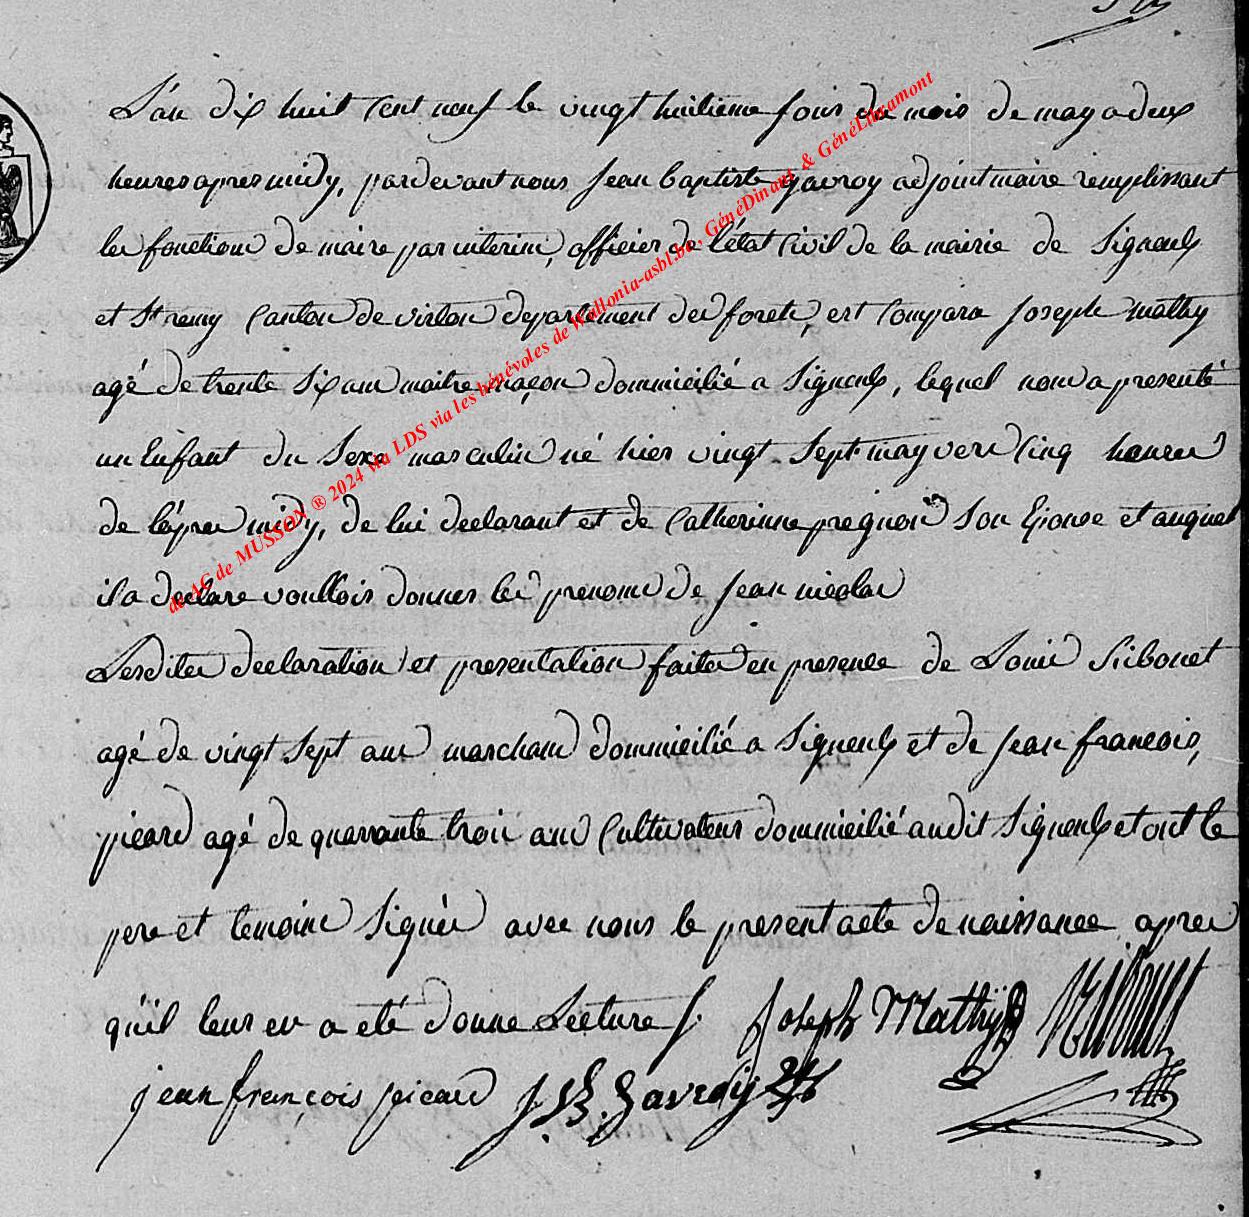 L'an dix huit cent neuf le vingt huitieme jour du mois de may a deux
heures apres midy, pardevant nous Jean baptiste gavroy adjoint maire remplissant
les fonctions de maire par interim, officier de l'état Civil de la mairie de Signeulx
et St remy Canton de virton departement des forets, est Comparu Joseph mathy
agé de trente Six ans maitre maçon dommicilié a Signeulx, lequel nous a presenté
un Enfant du Sexe masculin né hier vingt Sept may vers Cinq heures
de l'épres midy, de lui declarant et de Catherinne pregnon Son Epouse et auquel
il a declare voulloir donner les prenoms de Jean nicolas
Lesdites declaration et presentation faites en presence de Louis Ribonet
agé de vingt Sept ans marchand dommicilié a Signeulx et de Jean francois,
picard agé de quarrante trois ans Cultivateur dommicilié audit Signeulx et ont le
pere et temoins Signés avec nous le present acte de naissance apres
qu'il leur en a eté donne Lecture
Joseph Mathÿ
jean françois picard J. B. Gavroÿ
de AC de MUSSON ® 2024 via LDS via les bénévoles de Wallonia-asbl.be, GénéDinant & GénéLibramont